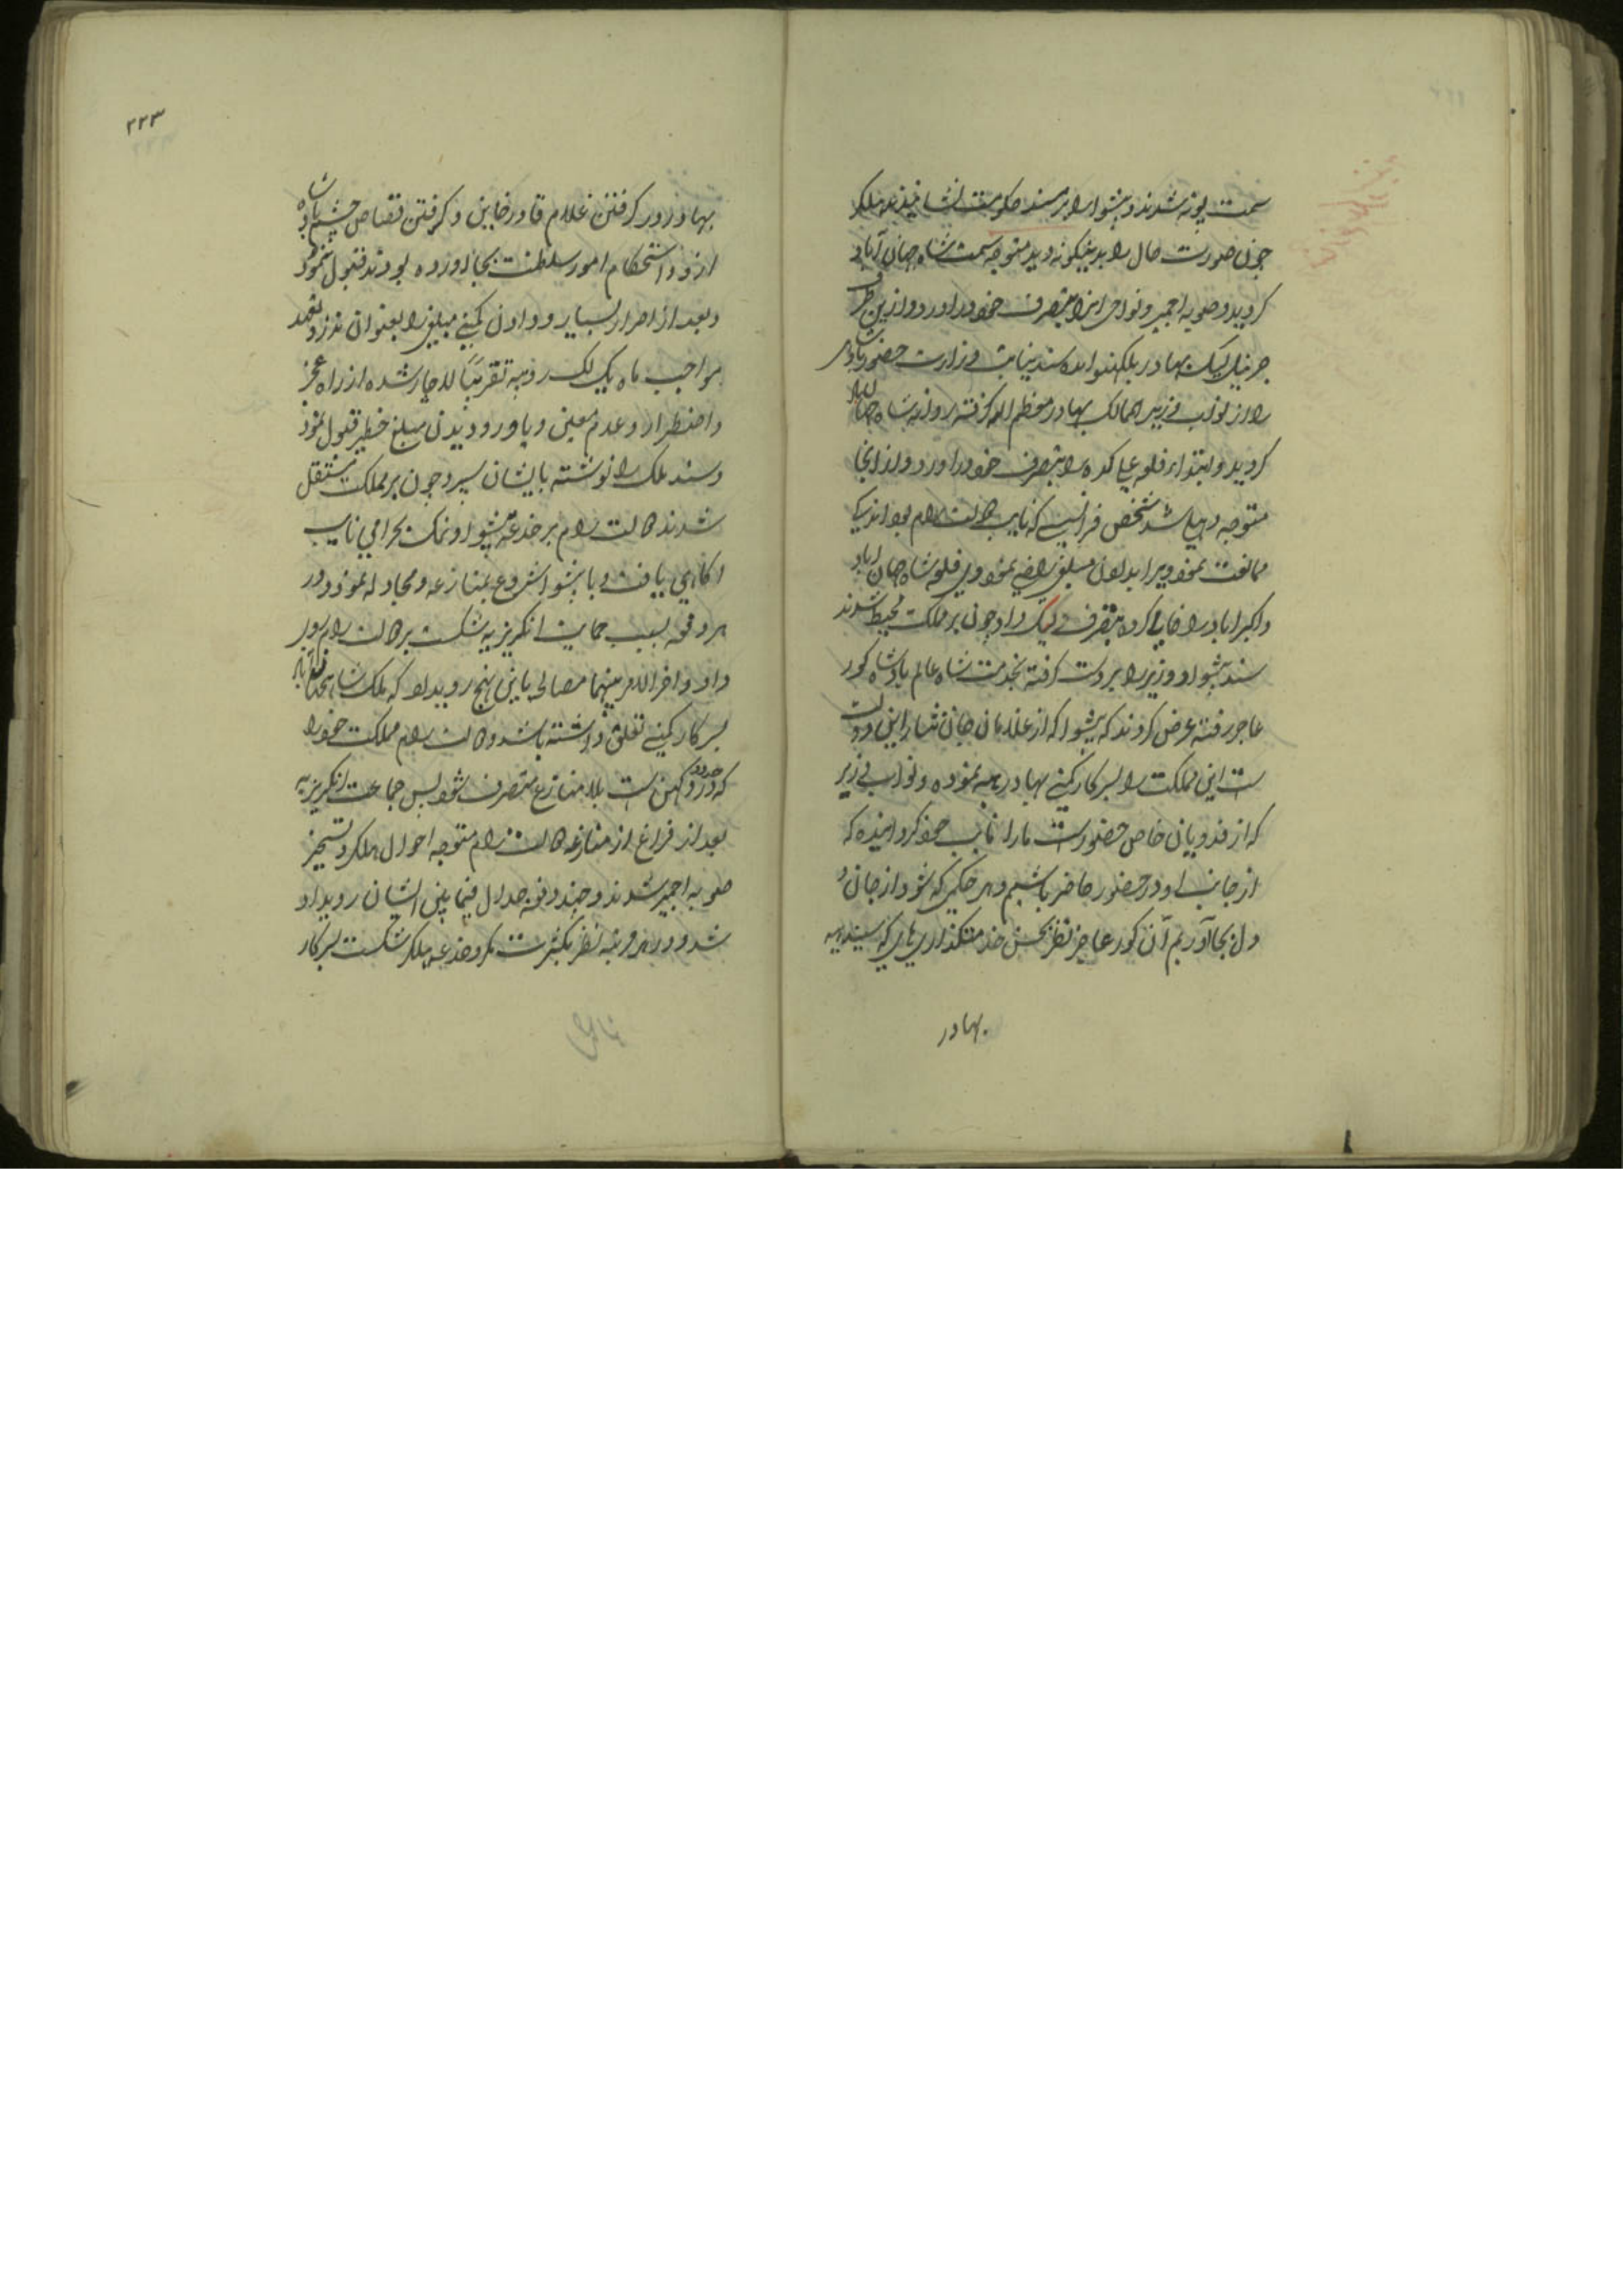 سمت پونه شدند و پیشوا را بر مسند حکومت نشانیدند هلکر
چون صورت حال را بدینگونه دید متوجه سمت شاه جهان آباد
کردید و صوبه اجمیر و نواحی انرا بتصرف خود در اورد و ازین طرف
جرنیل لیک بهادر بلکهنو امده سند نیابت وزارت حضور پادشاهی
را از نواب وزیر الممالک بهادر معظم الیه کرفته روانه شاه جهان اباد
کردید و ابتدا قلعه علی کده را بتصرف خود در اورد و از انجا
متوجه دهلی شد شخص فرانسیس که نایب دولت رام بود اندکی
ممانعت نمود ویرا بدادن مبلغی راضی نمود وی قلعه شاه جهان اباد
و اکبراباد را خالی کرده بتصرف لیک داد چون بر مملکت محیط شدند
سند پیشوا و وزیر را بر دست کرفته بخدمت شاه عالم پادشاه کور
عاجز رفته عرض کردند که پیشوا که از غلامان جان نثار این دولت
ست این مملکت را بسرکار کمپنی بهادر هبه نموده و نواب وزیر
که از فدویان خاص حضورست ما را نایب خود کردانیده که
از جانب او در حضور حاضر باشیم و هر حکمی که شود از جان و
دل بجا آوریم آن کور عاجز نظر بحسن خدمتکذاری های که سیندیه
بهادر
۲۲۳
بهادر در کرفتن غلام قادر خاین و کرفتن قصاص چشم پادشاه
ازو و استحکام امور سلطنت بجا اورده بود قبول ننمود
و بعد از اصرار بسیار و دادن کمپنی مبلغی را بعنوان نذر و تعهد
مواجب ماه یک لک روپیه تقریبًا لاچار شده از راه عجز
و اضطرار و عدم معین و یاور و دیدن مبلغ خطیر قبول نمود
و سند ملک را نوشته بایشان سپرد چون بر مملکت مستقل
شدند دولت رام بر خدعه پیشوا و نمک بحرامی نایب
اکاهی یافت و با پیشوا شروع بمنازعه و مجادله نمود و در
هر دفعه بسبب حمایت انکریزیه شکست بر دولت رام روی
داد و اخر الامر بینهما مصالحه باین نهج رویداد که ملک شاه جهان اباد
بسرکار کمپنی تعلق داشته باشد و دولت رام مملکت خود را
که در حدود دکهن ست بلا منازع متصرف شود پس جماعت انکریزیه
بعد از فراغ از منازعه دولت رام متوجه احوال هلکر و تسخیر
صوبه اجمیر شدند و چند دفعه جدال فیما بین ایشان رویداد
شد و در هر مرتبه نظر بکثرت مکر و خدعه هلکر شکست بسرکار